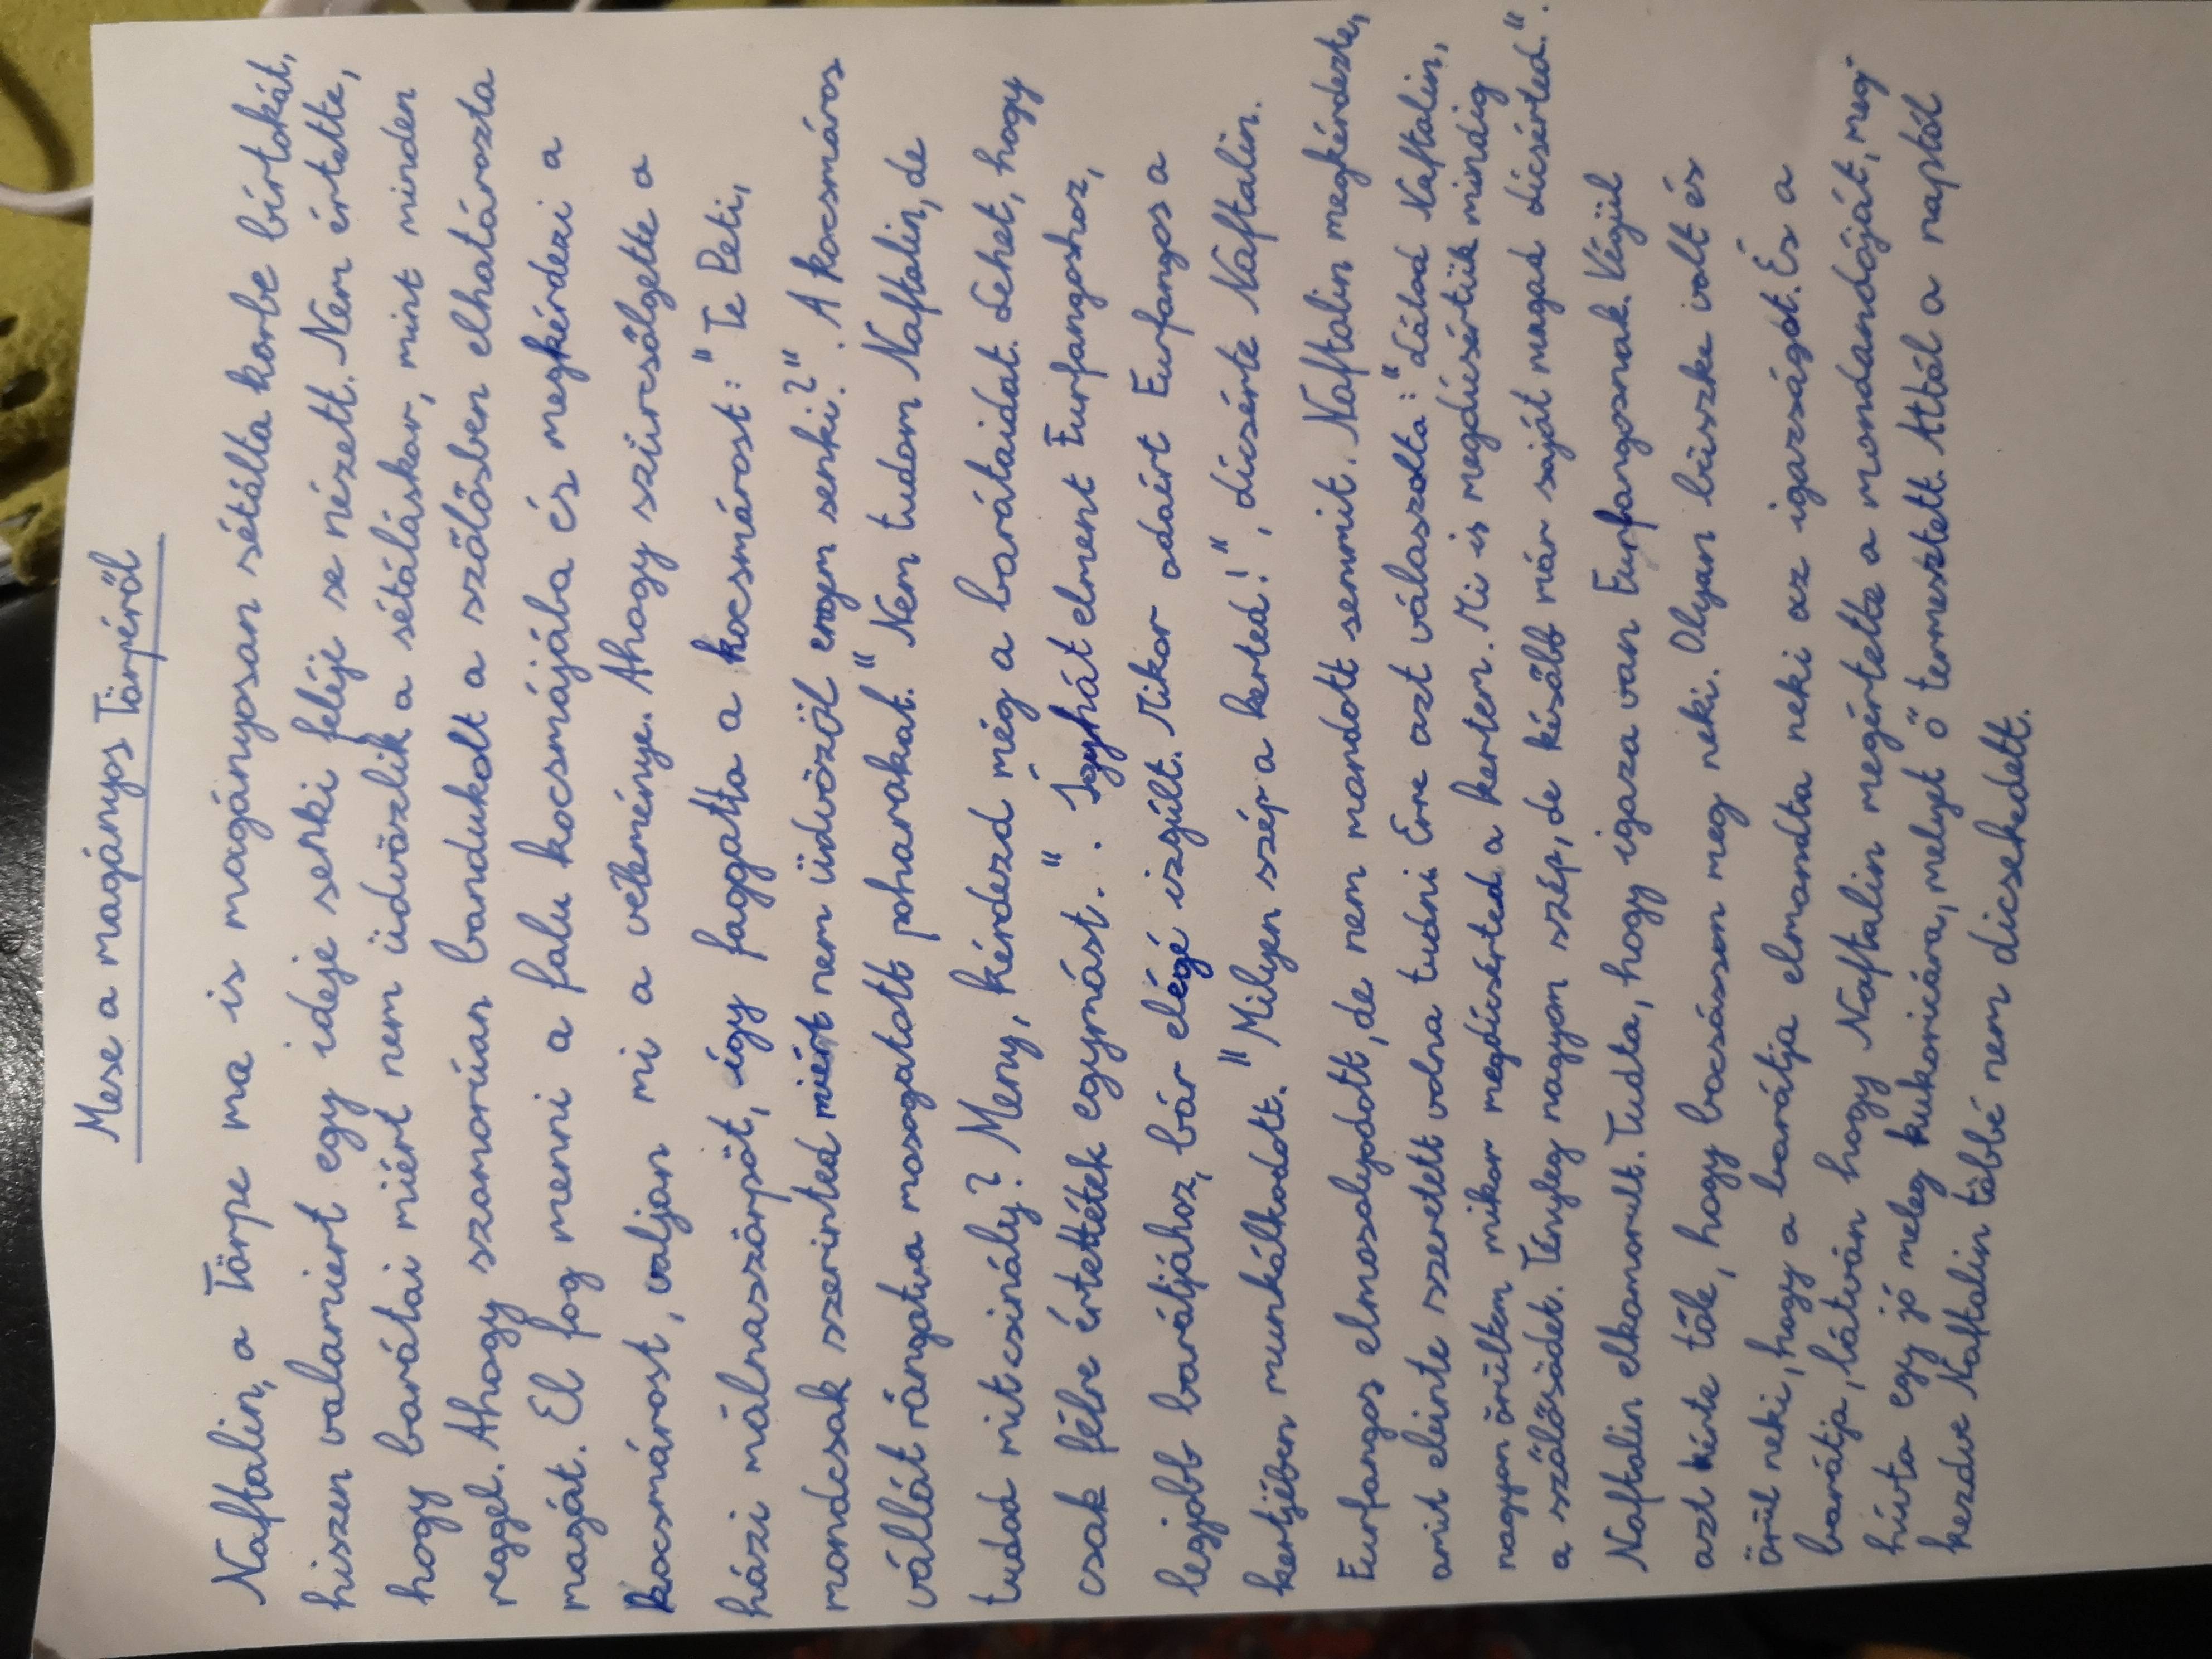 Mese a magányos Törpéről
Naftalin, a Törpe ma is magányosan sétálta körbe bírtokát,
hiszen valamiért egy ideje senki feléje se nézett. Nem értette,
hogy barátai miért nem üdvözlik a sétáláskor, mint minden
reggel. Ahogy szomorúan bandukolt a szőlősben elhatározta
magát. El fog menni a falu kocsmájába és megkérdezi a
kocsmárost, valjon mi a véleménye. Ahogy szürcsölgette a
házi málnaszörpöt, így faggatta a kocsmárost: "Te Peti,
mondcsak szerinted miért nem üdvözöl engem senki?". A kocsmáros
vállát rángatva mosogatott poharakat. "Nem tudom Naftalin, de
tudod mit csinálj? Meny, kérdezd még a barátaidat. Lehet, hogy
csak félre értettétek egymást.". Így hát elment Eurfangoshoz,
legjobb barátjához, bár elégé izgúlt. Mikor odaért Eurfangos a
kertjében munkálkodott. "Milyen szép a kerted!", dícsérte Naftalin.
Eurfangos elmosolyodott, de nem mondott semmit. Naftalin megkérdezte,
amit eleinte szeretett volna tudni. Erre azt válaszolta: "Látod Naftalin,
nagyon örültem mikor megdícsérted a kertem. Mi is megdícsértük mindig
a szőlősödet. Tényleg nagyon szép, de később már saját magad dícsérted.".
Naftalin elkomorult. Tudta, hogy igaza van Eurfangosnak. Végül
azt kérte tőle, hogy bocsásson meg neki. Olyan büszke volt és
örül neki, hogy a barátja elmondta neki az igazságot. És a
barátja, látván hogy Naftalin megértette a mondandóját, meg-
hívta egy jó meleg kukoricára, melyet ő termesztett. Attól a naptól
kezdve Naftalin többé nem dicsekedett.